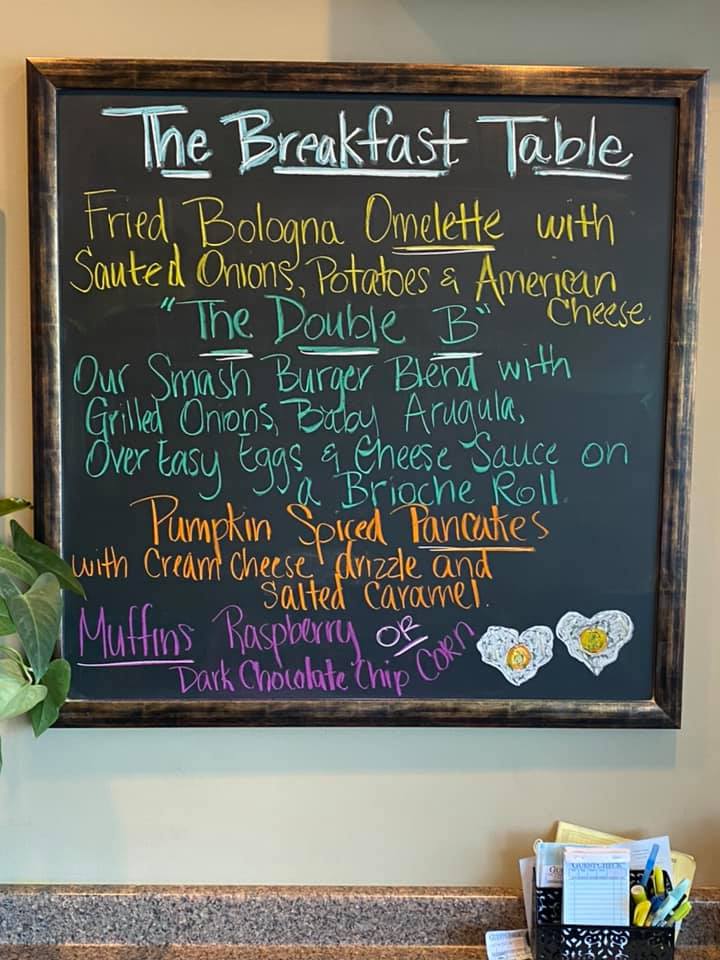 The Breakfast Table
Fried Bologna Omelette with
Sauted Onions, Potatoes & American
Cheese.
"The Double B"
Our Smash Burger Blend with
Grilled Onions, Baby Arugula,
Over Easy Eggs & Cheese Sauce on
a Brioche Roll.
Pumpkin Spiced Pancakes
with Cream Cheese drizzle and
Salted Caramel.
Muffins Raspberry OR
Dark Chocolate Chip Corn
GUEST CHECK